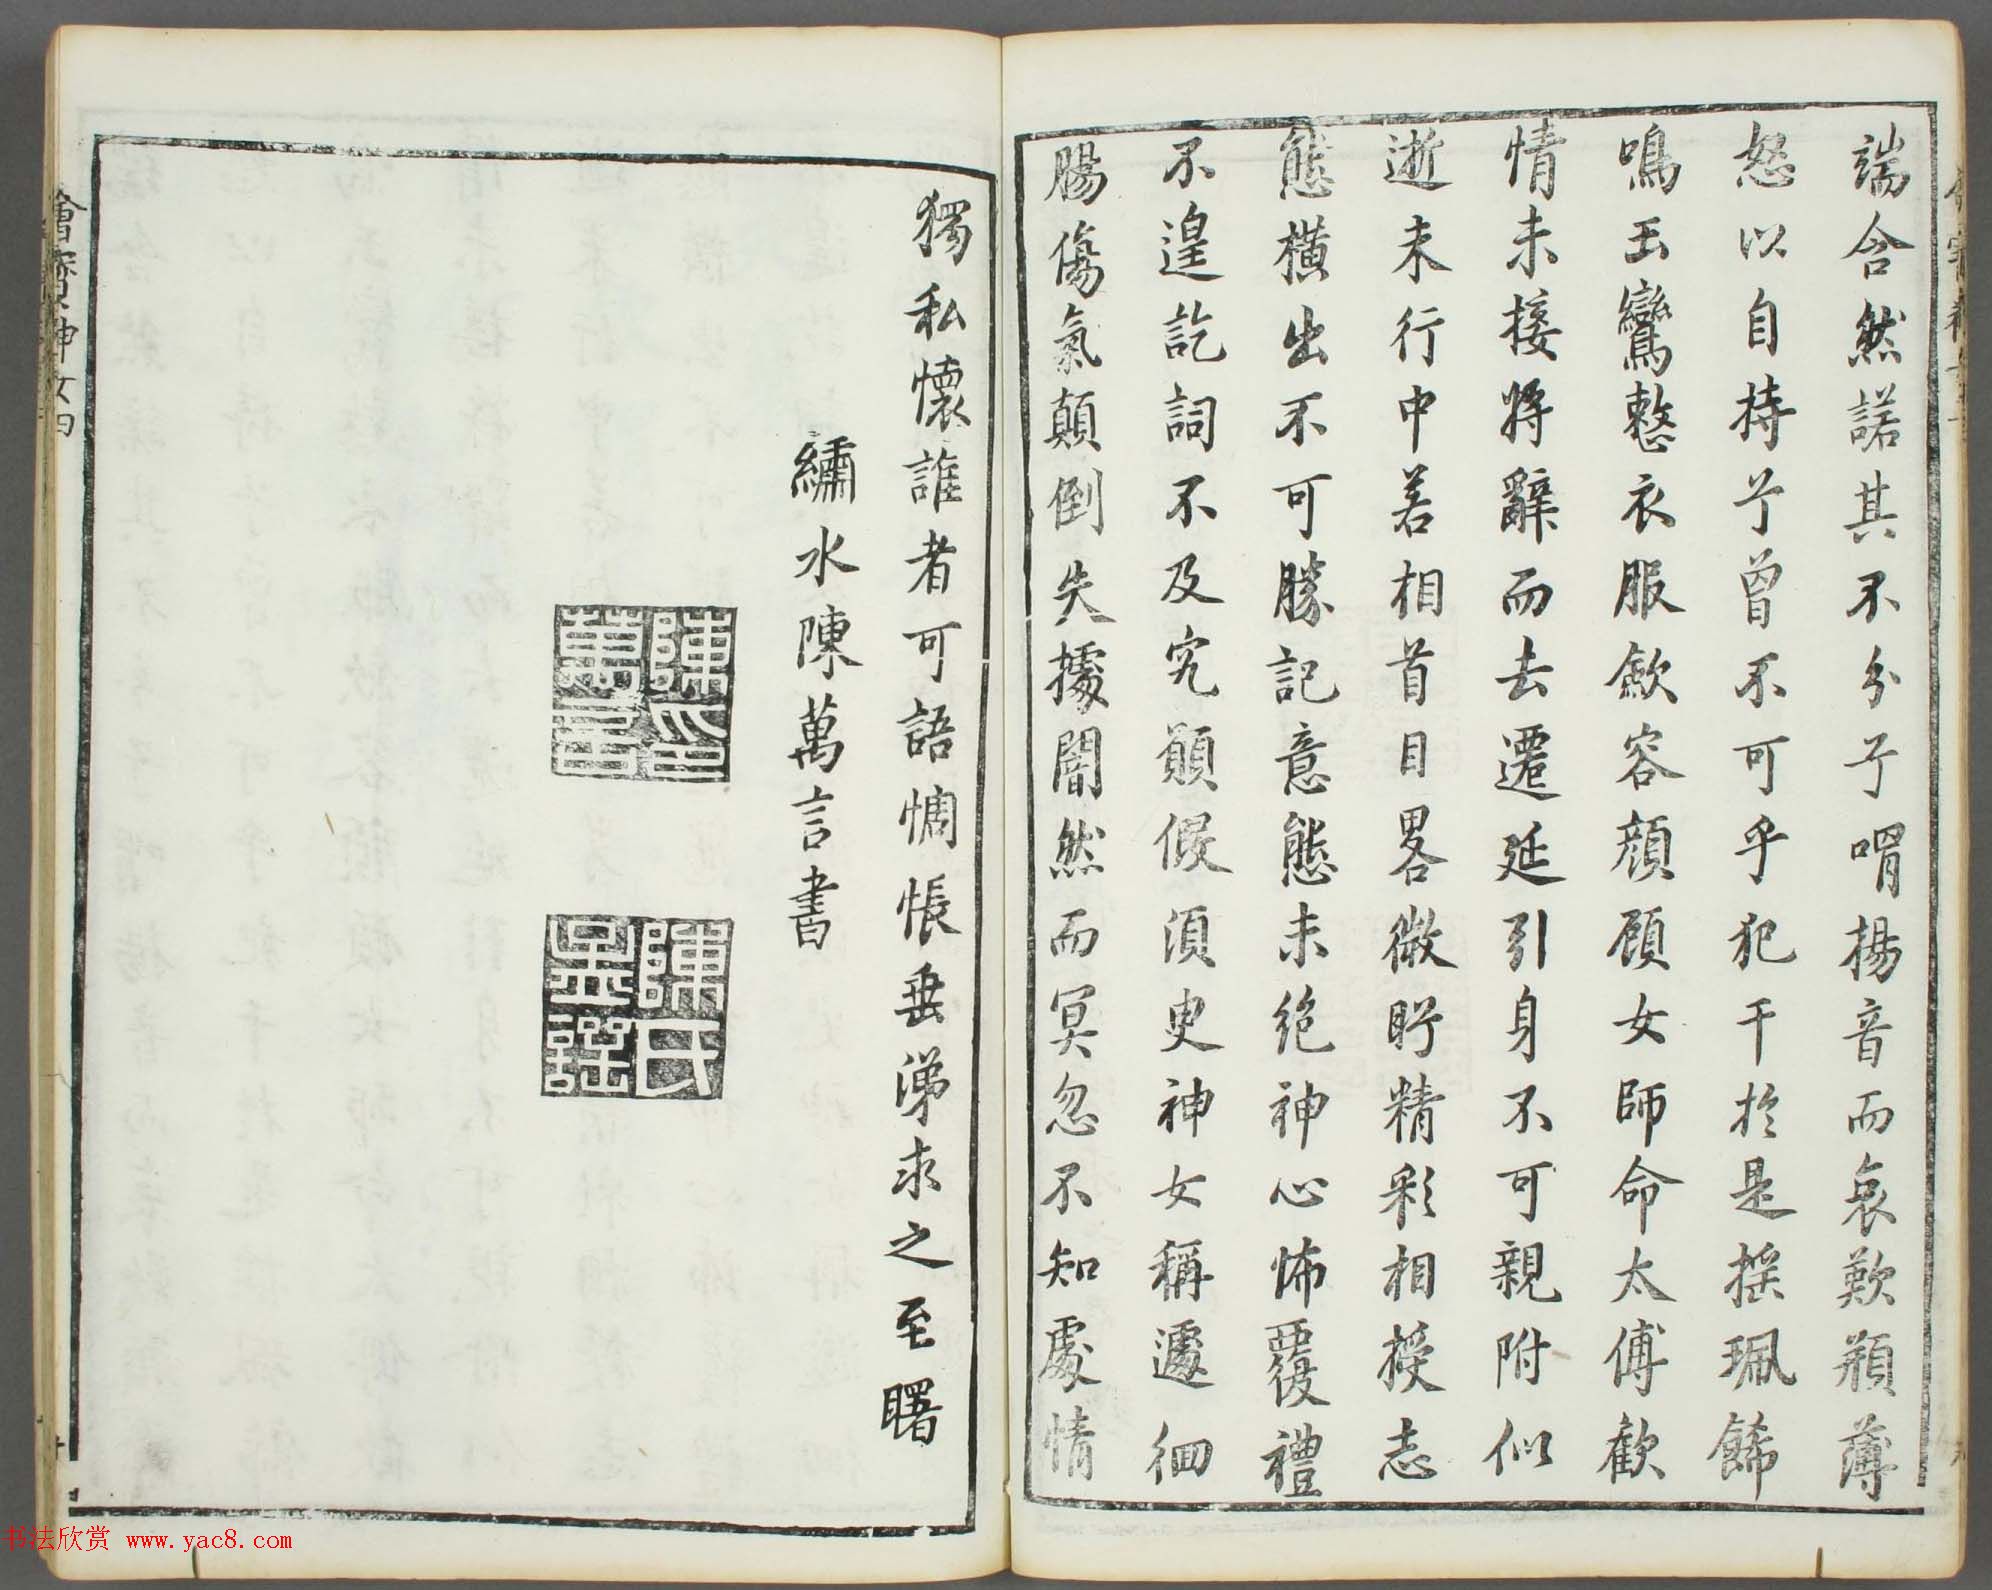 端含然諾其不分兮喟揚音而哀歎頩薄
怒以自持兮曾不可乎犯干於是搖珮餙
鳴玉鸞整衣服歛容顔顧女師命太傅歡
情未接將辭而去遷延引身不可親附似
逝未行中若相首目畧微眄精彩相授志
態橫出不可勝記意態未絶神心怖覆禮
不遑訖詞不及究願假須臾神女稱遽徊
腸傷氣顛倒失據闇然而冥忽不知處情
獨私懷誰者可語惆悵垂涕求之至曙
繡水陳萬言書
陳印萬言
陳氏
繪寶神女四
书法欣赏 www.yac8.com